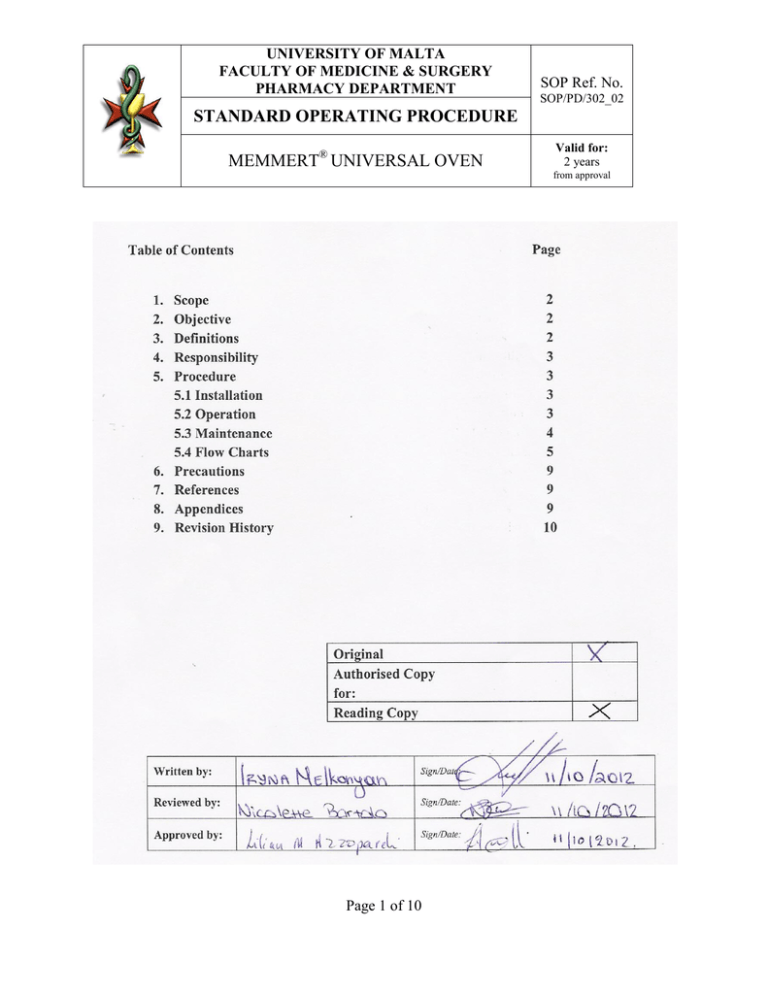 UNIVERSITY OF MALTA
FACULTY OF MEDICINE & SURGERY
PHARMACY DEPARTMENT
STANDARD OPERATING PROCEDURE
MEMMERT® UNIVERSAL OVEN
SOP Ref. No.
SOP/PD/302_02
Valid for:
2 years
from approval
Table of Contents Page
1. Scope 2
2. Objective 2
3. Definitions 2
4. Responsibility 3
5. Procedure 3
5.1 Installation 3
5.2 Operation 3
5.3 Maintenance 4
5.4 Flow Charts 5
6. Precautions 9
7. References 9
8. Appendices 9
9. Revision History 10
Original X
Authorised Copy
for:
Reading Copy X
Written by: IRYNA MElkonyan Sign/Date: 11/10/2012
Reviewed by: Nicolette Bartolo Sign/Date: 11/10/2012
Approved by: Lilian M Azzopardi Sign/Date: 11/10/2012.
Page 1 of 10